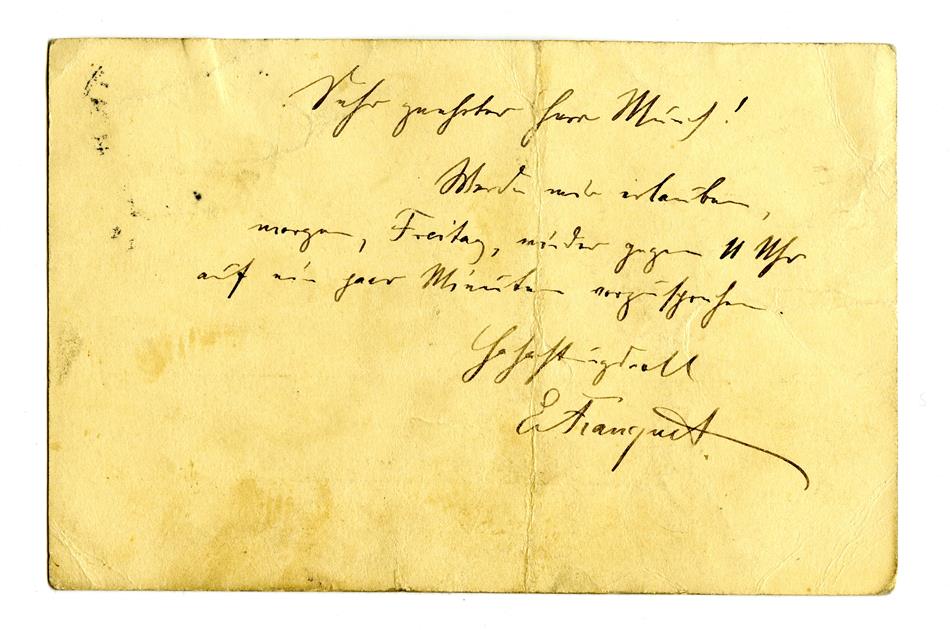 Sehr geehrter Herr Munch!
Werde mir erlauben,
morgen, Freitag, wieder gegen 11 Uhr
auf ein paar Minuten vorzusprechen.
Hochachtungsvoll
E. Franquet